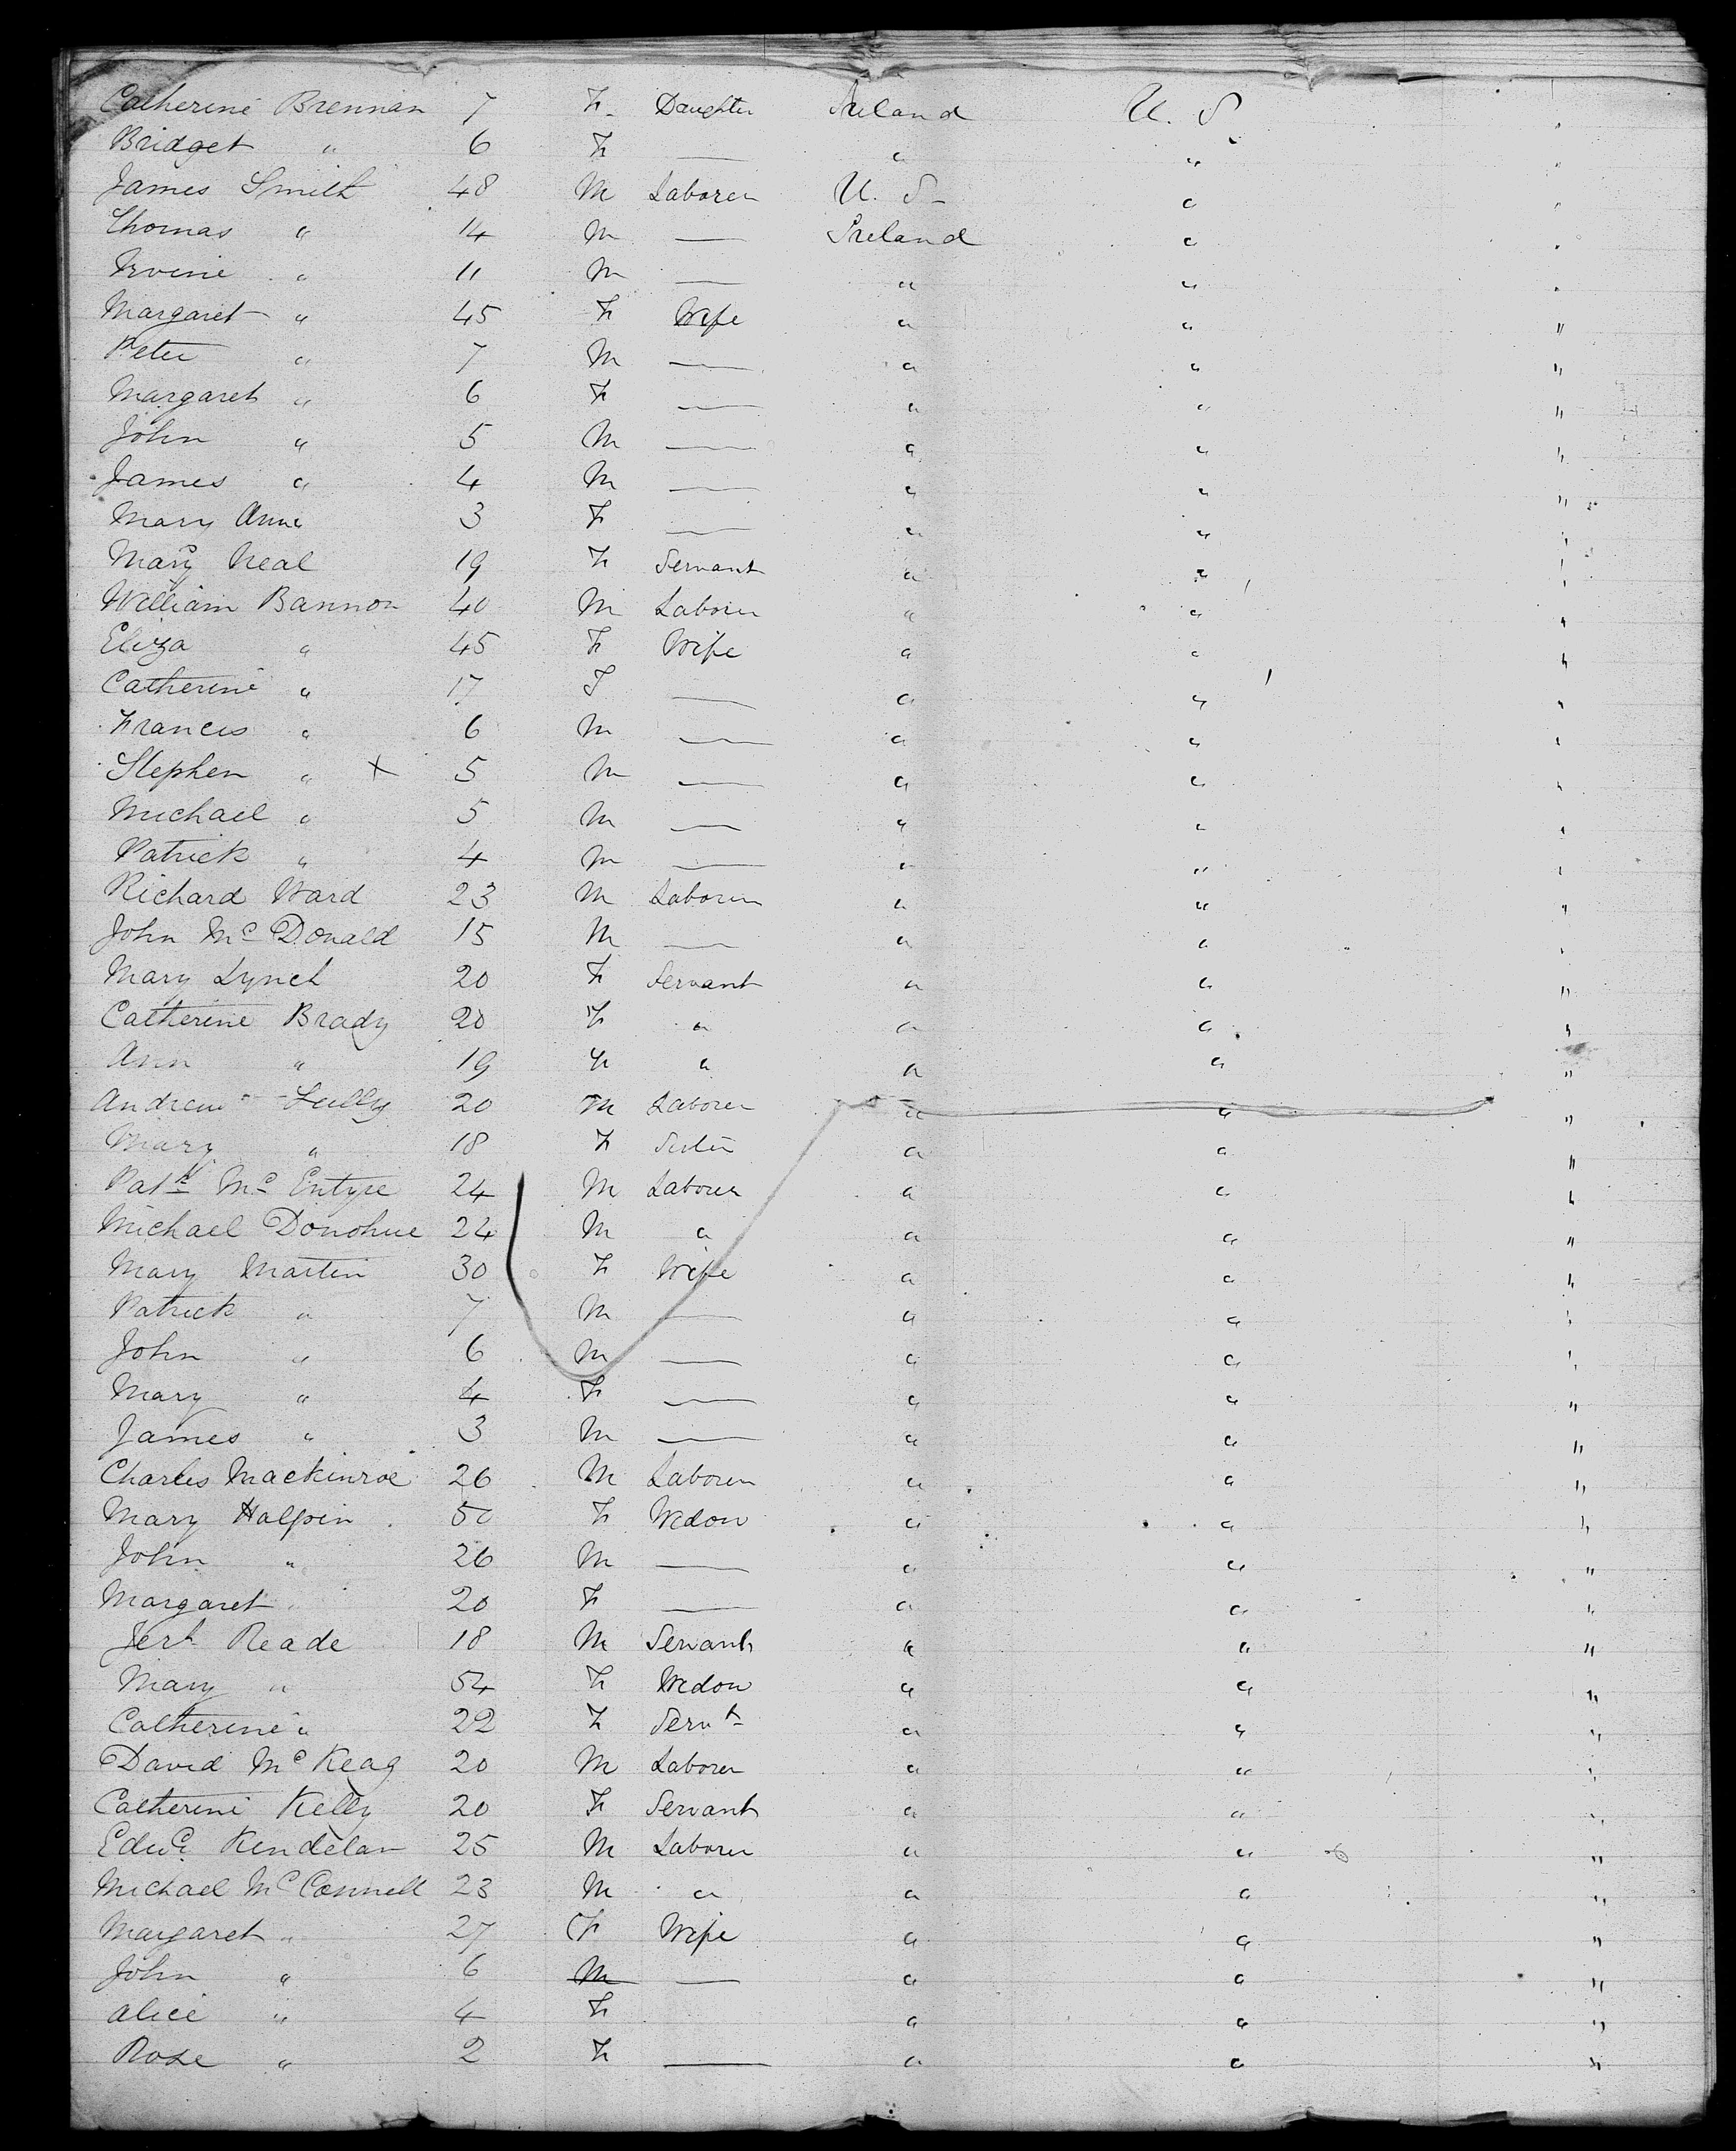 Catherine Brennan 7 F. Daughter Ireland U. S.
Bridget " 6 F — " " "
James Smith 48 M Laborer U. S. " "
Thomas " 14 M — Ireland " "
Irvine " 11 M — " " "
Margaret " 45 F Wife " " "
Peter " 7 M — " " "
Margaret " 6 F — " " "
John " 5 M — " " "
James " 4 M — " " "
Mary Anne 3 F — " " "
Mary Neal 19 F Servant " " "
William Bannon 40 M Laborer " " "
Eliza " 45 F Wife " " "
Catherine " 17 F — " " "
Francis " 6 M — " " "
Stephen " X 5 M — " " "
Michael " 5 M — " " "
Patrick " 4 M — " " "
Richard Ward 23 M Laborer " " "
John Mc Donald 15 M — " " "
Mary Lynch 20 F Servant " " "
Catherine Brady 20 F " " " "
Ann " 19 F " " " "
Andrew 20 M Laborer " " "
Mary " 18 F Sister " " "
Patk Mc Entyre 24 M Laborer " " "
Michael Donohue 24 M " " " "
Mary Martin 30 F Wife " " "
Patrick " 7 M — " " "
John " 6 M — " " "
Mary " 4 F — " " "
James " 3 M — " " "
Charles Mackinroe 26 M Laborer " " "
Mary Halpin 50 F Widow " " "
John " 26 M — " " "
Margaret " 20 F — " " "
Reade 18 M Servant " " "
Mary " 54 F Widow " " "
Catherine " 22 F Servt " " "
David Mc Keag 20 M Laborer " " "
Catherine Kelly 20 F Servant " " "
Edwd Kendelan 25 M Laborer " " "
Michael McConnell 23 M " " " "
Margaret " 27 F Wife " " "
John " 6 M — " " "
Alice " 4 F " " "
Rose " 2 F — " " "